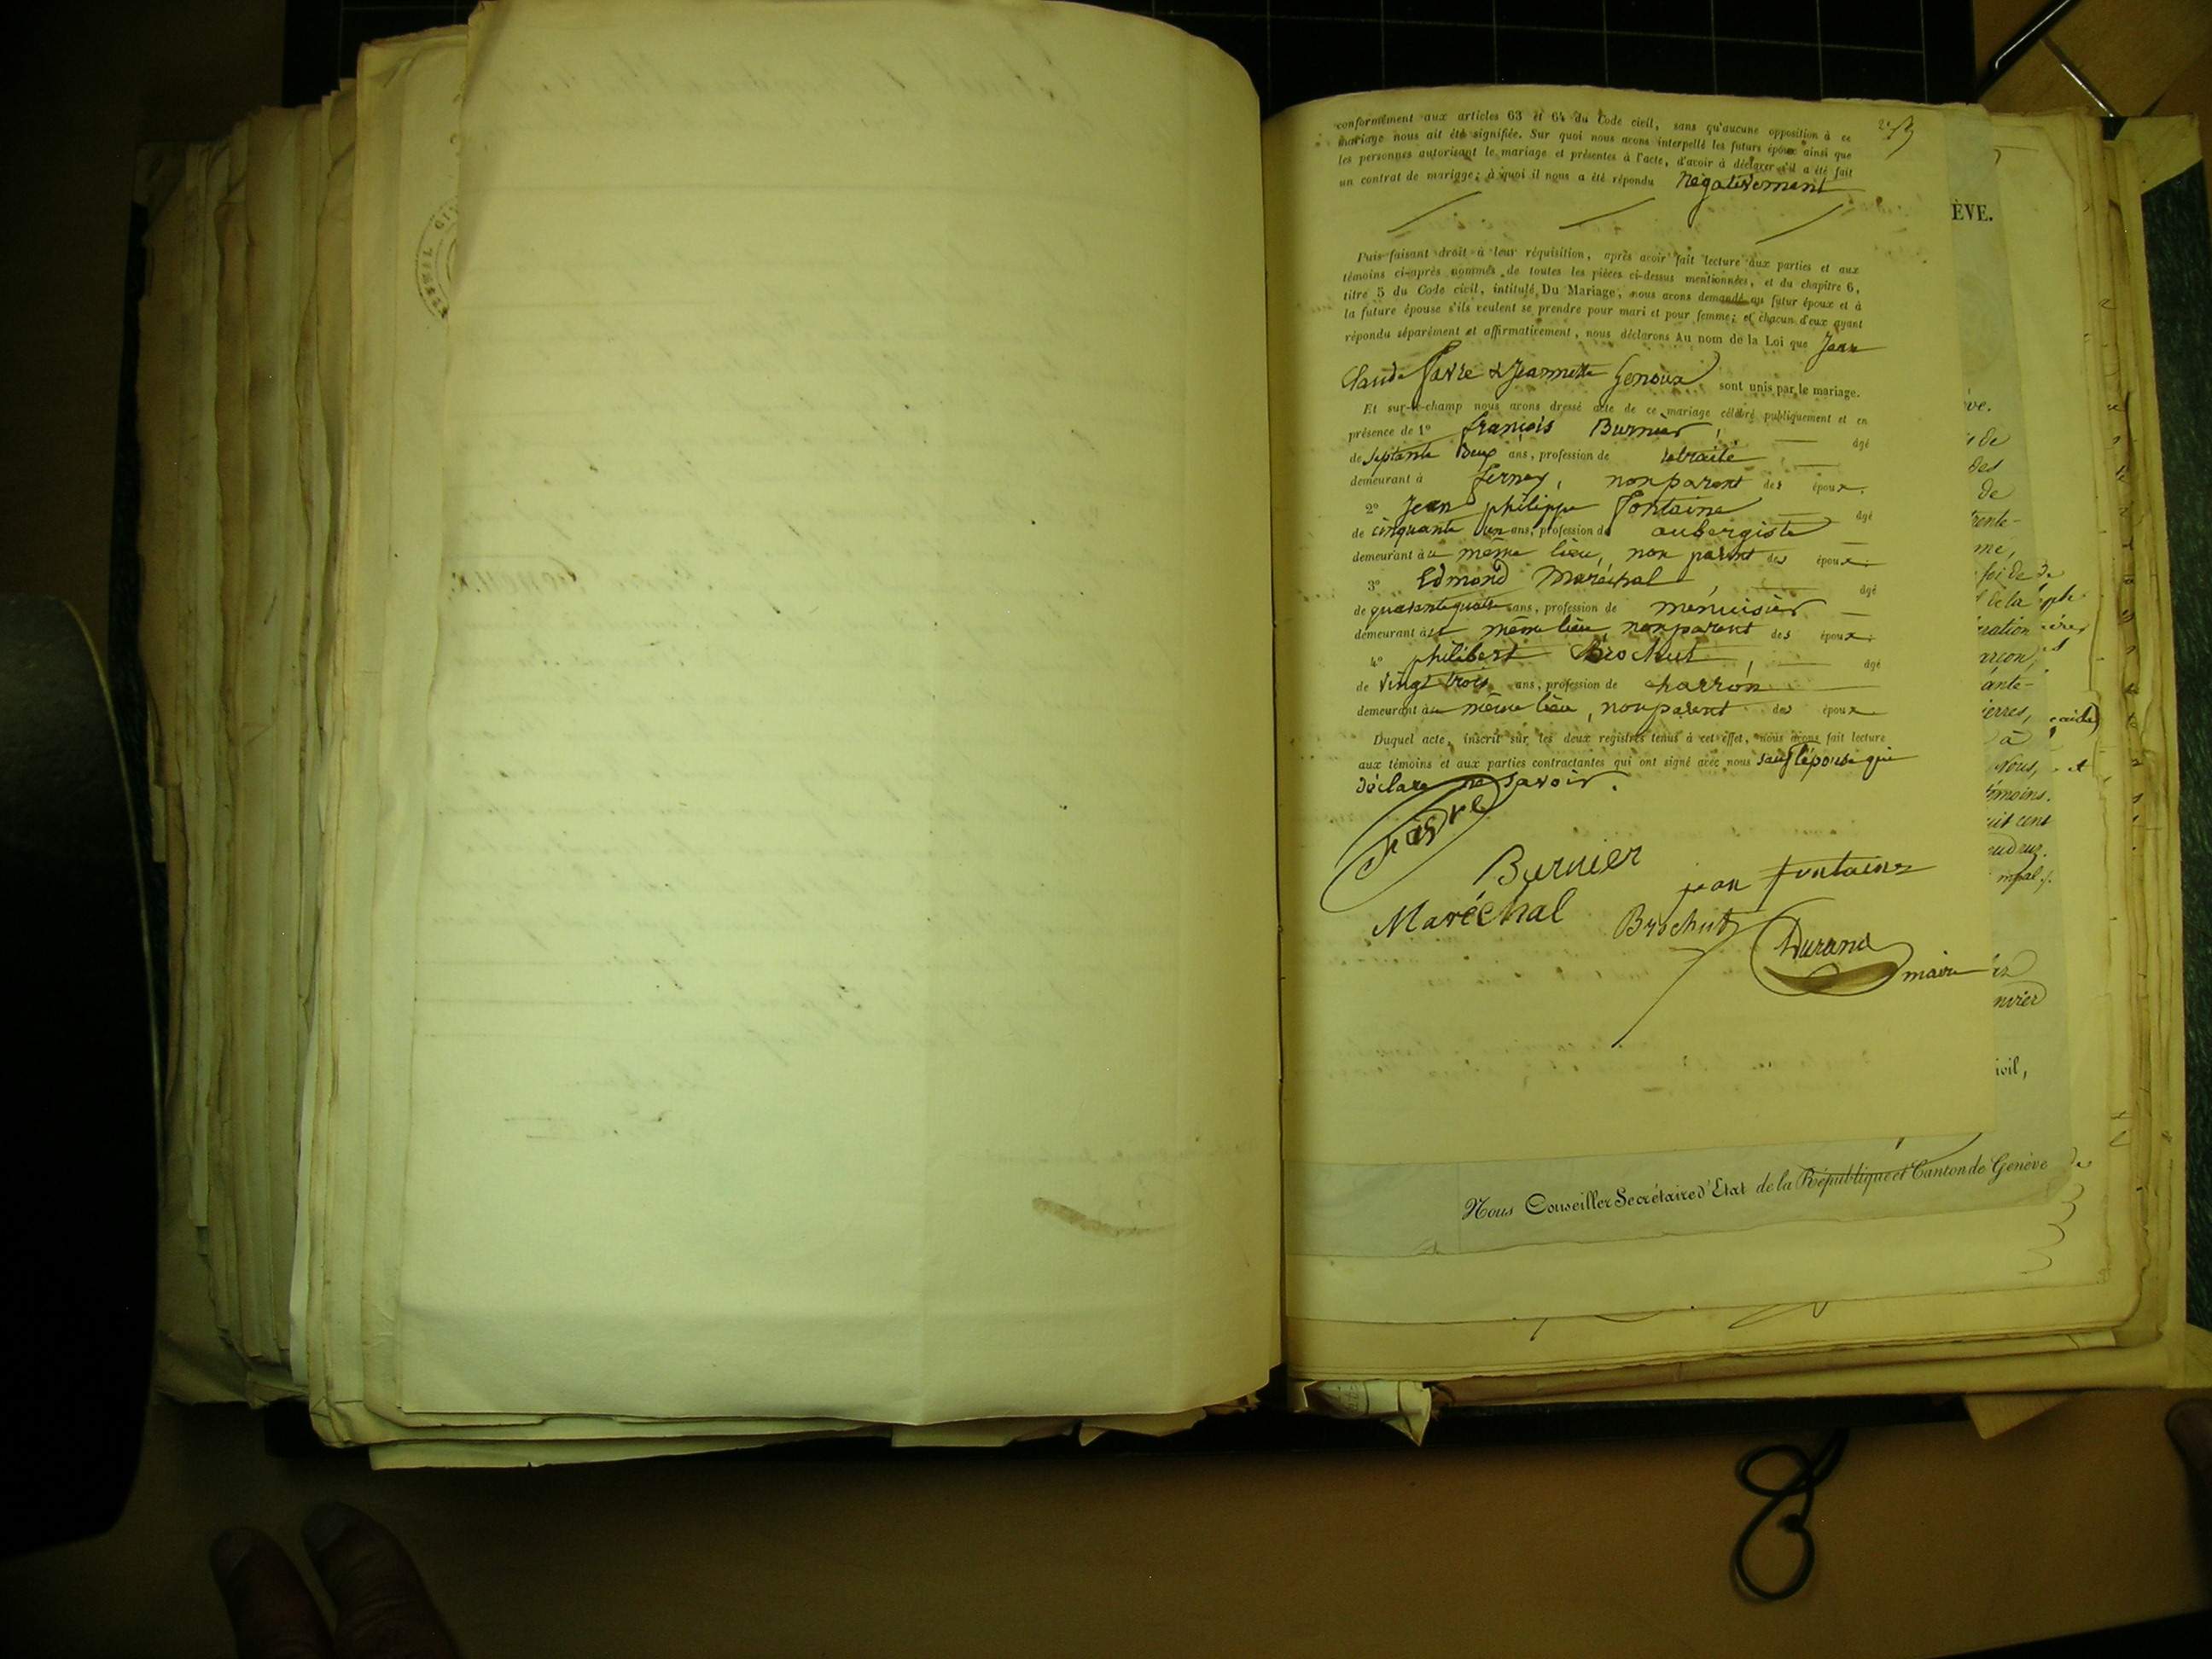 conformément aux articles 63 et 64 du Code civil, sans qu'aucune opposition à ce
mariage nous ait été signifiée. Sur quoi nous avons interpellé les futurs époux ainsi que
les personnes autorisant le mariage et présentes à l'acte, d'avoir à déclarer s'il a été fait
un contrat de mariage; à quoi il nous a été répondu négativement
ÈVE.
Puis faisant droit à leur réquisition, après avoir fait lecture aux parties et aux
témoins ci-après nommés de toutes les pièces ci-dessus mentionnées, et du chapitre 6,
titre 5 du Code civil, intitulé Du Mariage, nous avons demandé au futur époux et à
la future épouse s'ils veulent se prendre pour mari et pour femme; et chacun d'eux ayant
répondu séparément et affirmativement, nous déclarons Au nom de la Loi que Jean
Claude Favre & Jeannette Genoux sont unis par le mariage.
Et sur-le-champ nous avons dressé acte de ce mariage célébré publiquement et en
présence de 1° françois Burnier, âgé
de septante deux ans, profession de retraité
demeurant à ferney, non parent des époux.
2° Jean philippe Fontaine âgé
de cinquante un ans, profession de aubergiste
demeurant au même lieu, non parent des époux.
3° Edmond Maréchal, âgé
de quarante quatre ans, profession de menuisier
demeurant au même lieu, non parent des époux.
4° philibert Brochut, âgé
de vingt trois ans, profession de charron
demeurant au même lieu, non parent des époux
Duquel acte, inscrit sur les deux registres tenus à cet effet, nous avons fait lecture
aux témoins et aux parties contractantes qui ont signé avec nous sauf l'épouse qui
déclare ne savoir.
Favre
Burnier
jean fontaine
Maréchal
Brochut
Durand
maire
ève.
de
des
de
trente-
me,
ration
arçon,
ante-
ierres,
à
Nous,
témoins.
uit cent
nvier
ivil,
Nous Conseiller Secrétaire d'Etat de la République et Canton de Genève